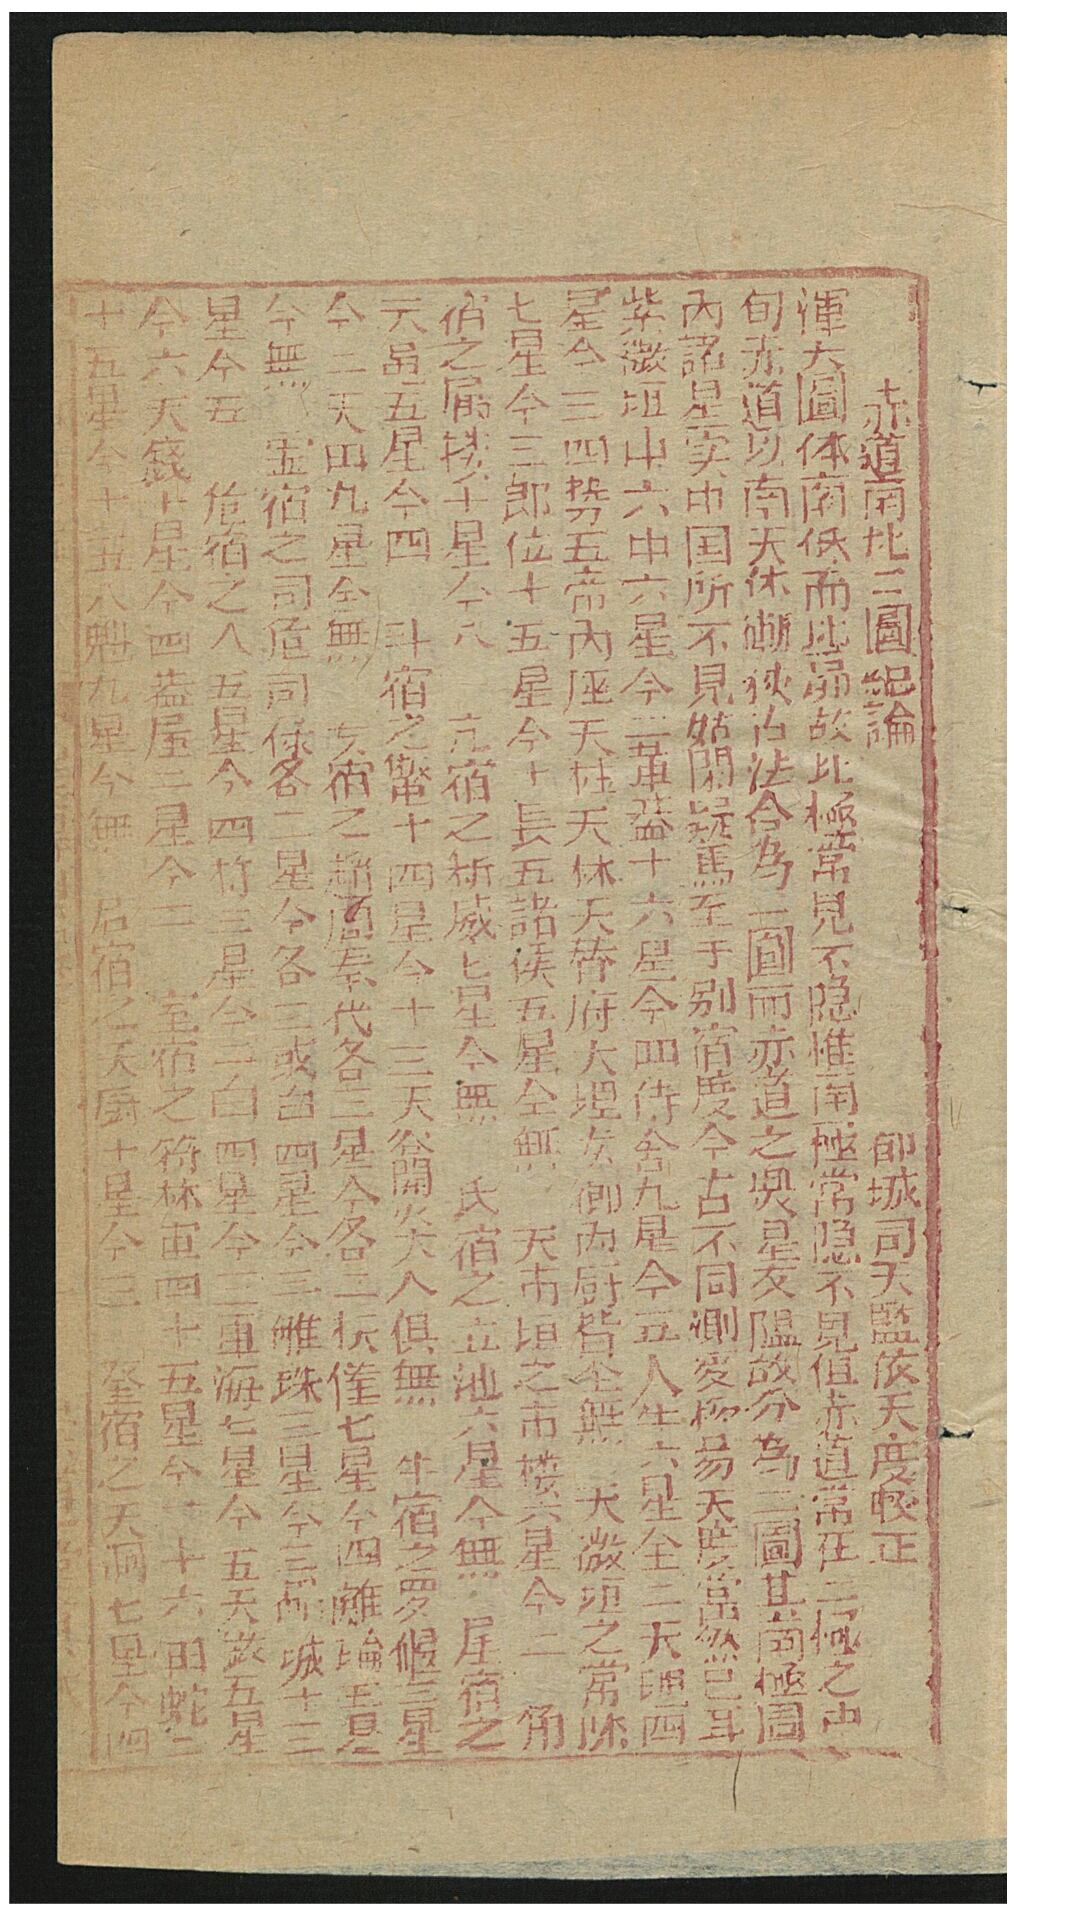 赤道南北二圖總論 司天監依天度較正
渾天圖体南低而北昂故北極常見不隐惟南極常隐不見但赤道常在二極之中
旬赤道以南天体漸狹冶法合為一圓而赤道之與星友隘故分為二圖其南極圓
內諸星实中国所不見姑闕疑焉至于别宿度今古不同測变极易天度当然已耳
紫微垣中六中六星今二華盖十六星今四侍舍九星今五人生六星全二天理四
星今三四势五帝內座天柱天休天帝府大理女御內厨皆全無 太微垣之常陈
七星今三郎位十五星今十長五諸侯五星全無 天市垣之市楼六星今二 角
宿之属楼十星今八 亢宿之析威七星今無 氐宿之立池六星今無 尾宿之
天黾五星今四 斗宿之鱉十四星今十三天谷開火大人俱無 牛宿之罗堰三星
今二天田九星全無 女宿之趙周秦代各三星今各二扶僅七星今四離瑜三星
今無 虚宿之司危司禄各二星今各三或台四星今三離珠三星今三 城十三
星今五 危宿之人五星今四杵三星今二臼四星今三車海七星今五天 五星
今六天錢十星今四盖屋二星今二 室宿之羽林軍四十五星今二十六田蛇二
十五星今十五八魁九星今無 宿之天厨十星今三 奎宿之天溷七星今四